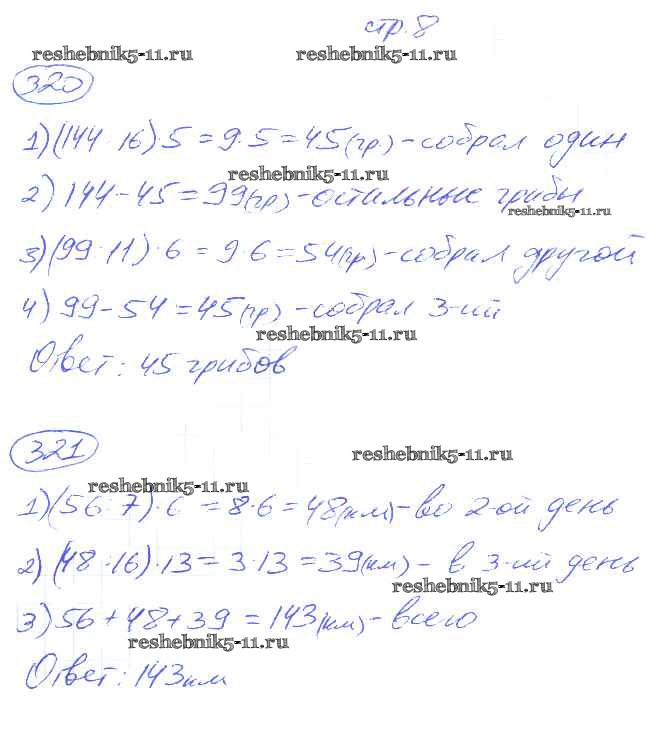 стр. 8
reshebnik5-11.ru reshebnik5-11.ru
320
1) (144 : 16) · 5 = 9 · 5 = 45 (гр.) - собрал один
reshebnik5-11.ru
2) 144 - 45 = 99 (гр) - остальные грибы
reshebnik5-11.ru
3) (99 : 11) · 6 = 9 · 6 = 54 (гр) - собрал другой
4) 99 - 54 = 45 (гр) - собрал 3-ий
reshebnik5-11.ru
Ответ: 45 грибов
321
reshebnik5-11.ru
reshebnik5-11.ru
1) (56 : 7) · 6 = 8 · 6 = 48 (км) - во 2-ой день
2) (48 : 16) · 13 = 3 · 13 = 39 (км) - в 3-ий день
reshebnik5-11.ru
3) 56 + 48 + 39 = 143 (км) - всего
reshebnik5-11.ru
Ответ: 143 км